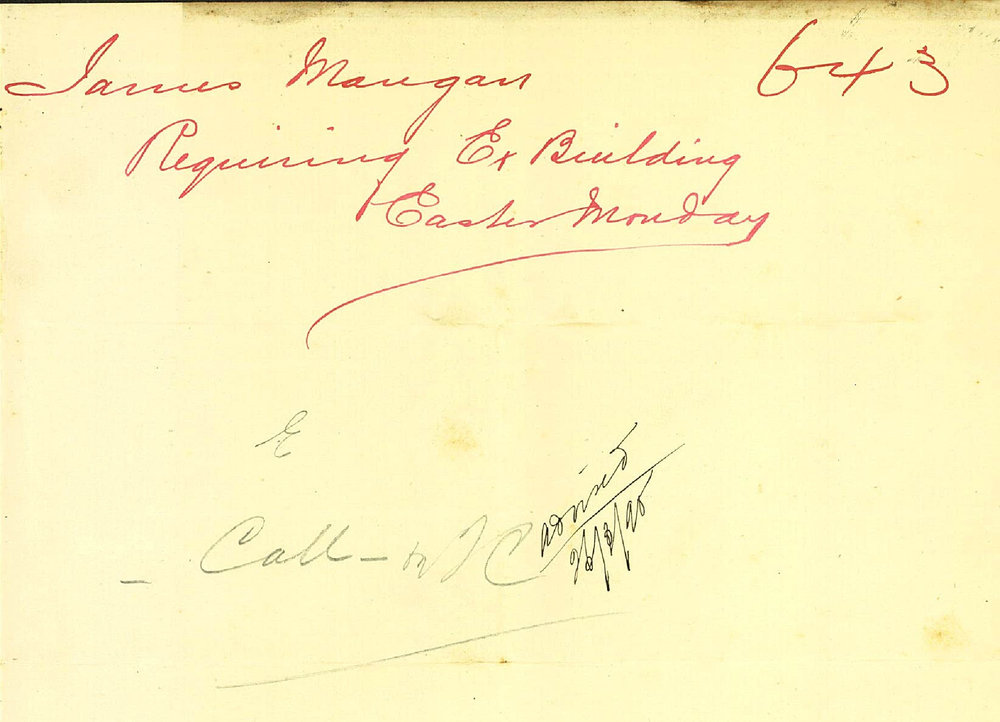 James Mangan 643
Requiring Ex Building
Easter Monday
E
Call - 
advised